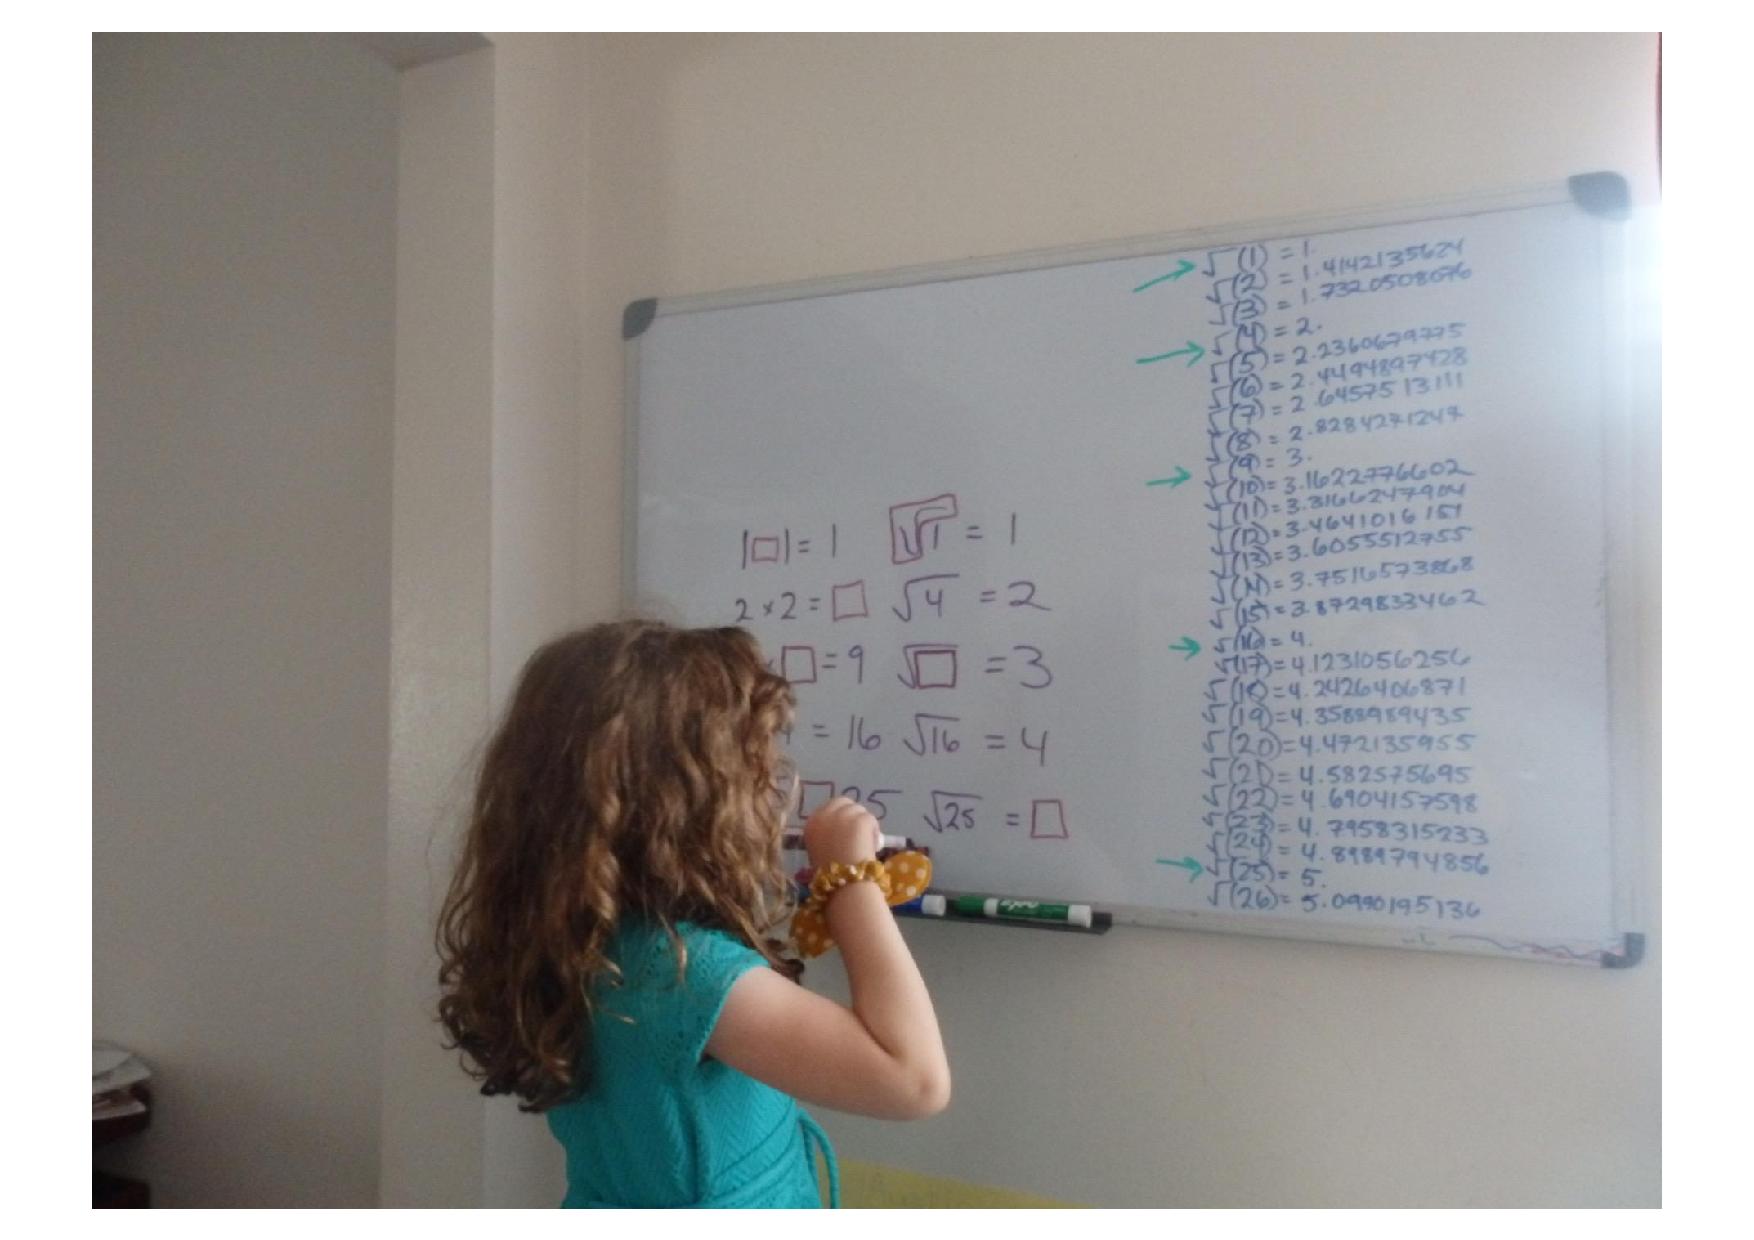 1 □ 1 = 1 √1 = 1
2 × 2 = □ √4 = 2
× □ = 9 √□ = 3
4 = 16 √16 = 4
□ 25 √25 = □
√(1) = 1.
√(2) = 1.4142135624
√(3) = 1.7320508076
√(4) = 2.
√(5) = 2.2360679775
√(6) = 2.4494897428
√(7) = 2.6457513111
√(8) = 2.8284271247
√(9) = 3.
√(10) = 3.1622776602
√(11) = 3.3166247904
√(12) = 3.4641016151
√(13) = 3.6055512755
√(14) = 3.7516573868
√(15) = 3.8729833462
√(16) = 4.
√(17) = 4.1231056256
√(18) = 4.2426406871
√(19) = 4.3588989435
√(20) = 4.472135955
√(21) = 4.582575695
√(22) = 4.6904157598
√(23) = 4.7958315233
√(24) = 4.8989794856
√(25) = 5.
√(26) = 5.0990195136